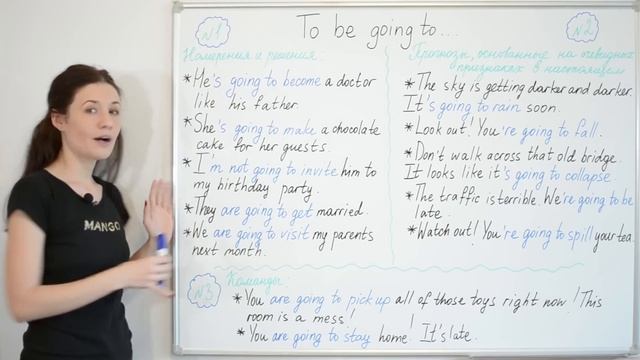 To be going to...
№1
Намерения и решения:
* He's going to become a doctor
like his father.
* She's going to make a chocolate
cake for her guests.
* I'm not going to invite him to
my birthday party.
* They are going to get married.
* We are going to visit my parents
next month.
№2
Прогнозы, основанные на очевидных
признаках в настоящем
* The sky is getting darker and darker.
It's going to rain soon.
* Look out! You're going to fall.
* Don't walk across that old bridge.
It looks like it's going to collapse.
* The traffic is terrible. We're going to be
late.
* Watch out! You're going to spill your tea.
№3
Команды:
* You are going to pick up all of those toys right now! This
room is a mess!
* You are going to stay home! It's late.
MANGO